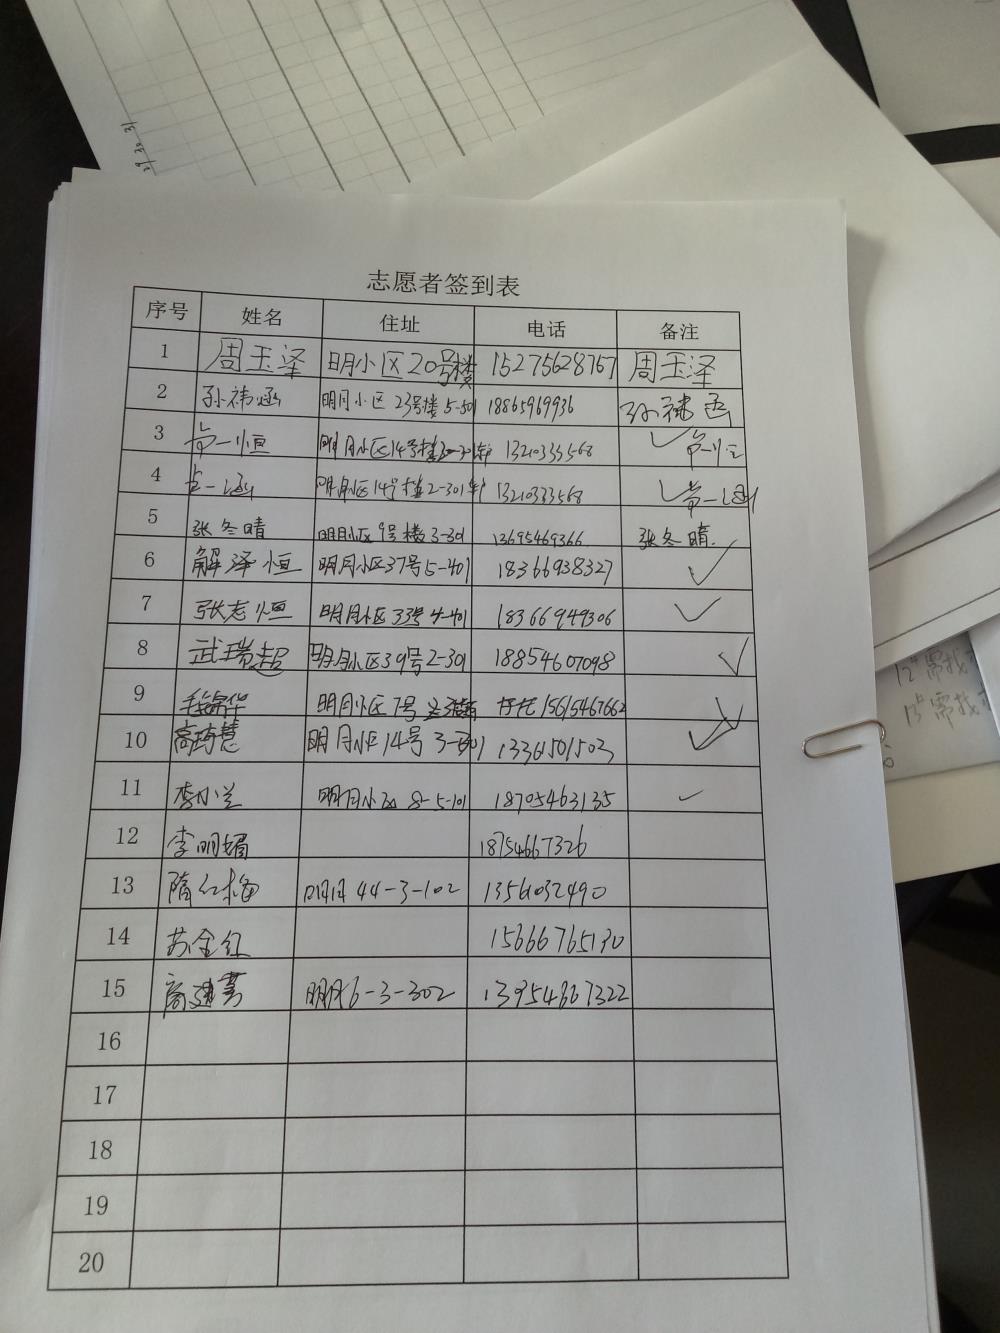 29 30 31
志愿者签到表
序号 姓名 住址 电话 备注
1 周玉泽 明小区20号楼 15275628767 周玉泽
2 孙祎涵 明月小区23号楼5-501 18865969936 孙祎函
3 一恒 明月小区14号楼 13210333568 ✓
4 一涵 明月小区14号楼2-301 13210333568 ✓
5 张冬晴 明月小区9号楼3-301 13695469366 张冬晴.
6 解泽恒 明月小区37号5-401 18366938327 ✓
7 张志恒 明月小区33号4-401 18366949306 ✓
8 武瑞超 明月小区39号2-301 18854607098 ✓
9 毛锦华 明月小区7号 15615467662 ✓
10 高琦慧 明月小区14号3-301 13361501503 ✓
11 李小兰 明月小区8-5-101 18705463135 ✓
12 李明娟 18754667326
13 隋红梅 明月44-3-102 13561032490
14 苏金红 15666765130
15 高建 明月6-3-302 13954667322
16
17
18
19
20
12# 需找
13# 需找